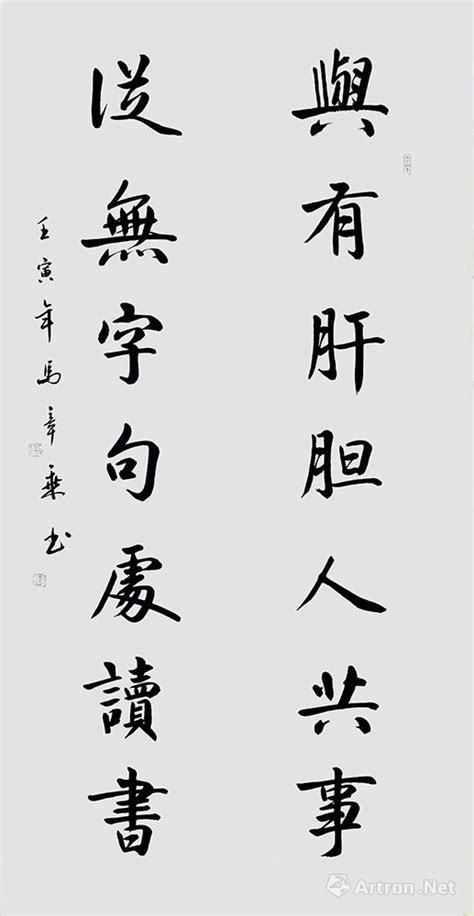 與有肝胆人共事
從無字句處讀書
壬寅年馬章乗书
Artron.Net